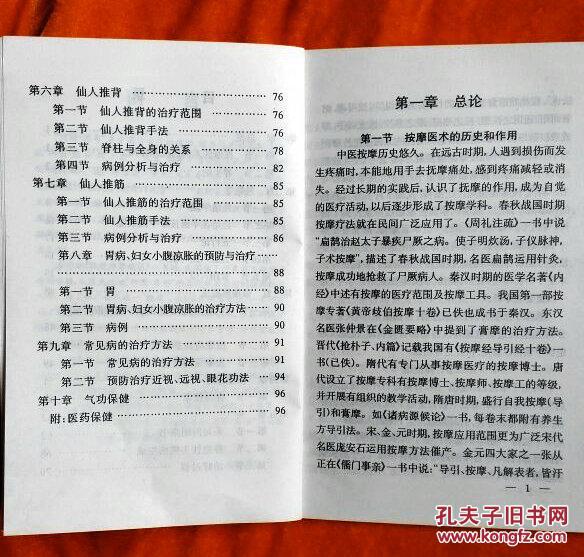 第六章 仙人推背 ………………………… 76
第一节 仙人推背的治疗范围 ………… 76
第二节 仙人推背手法 ………………… 76
第三节 脊柱与全身的关系 …………… 78
第四节 病例分析与治疗 ……………… 82
第七章 仙人推筋 ………………………… 85
第一节 仙人推筋的治疗范围 ………… 85
第二节 仙人推筋手法 ………………… 85
第三节 病例分析与治疗 ……………… 86
第八章 胃病、妇女小腹凉胀的预防与治疗 ……
………………………………………… 88
第一节 胃 ……………………………… 88
第二节 胃病、妇女小腹凉胀的治疗方法 … 90
第三节 病例 …………………………… 90
第九章 常见病的治疗方法 ……………… 91
第一节 常见病的治疗方法 …………… 91
第二节 预防治疗近视、远视、眼花功法 … 94
第十章 气功保健 ………………………… 96
附:医药保健 …………………………… 96
第一章 总论
第一节 按摩医术的历史和作用
中医按摩历史悠久。在远古时期,人遇到损伤而发
生疼痛时,本能地用手去抚摩痛处,感到疼痛减轻或消
失。经过长期的实践后,认识了抚摩的作用,成为自觉
的医疗活动,以后逐步形成了按摩学科。春秋战国时期
按摩疗法就在民间广泛应用了。《周礼注疏》一书中说
“扁鹊治赵太子暴疾尸厥之病。使子明炊汤,子仪脉神,
子术按摩”,描述了春秋战国时期,名医扁鹊运用针灸、
按摩成功地抢救了尸厥病人。秦汉时期的医学名著《内
经》中述有按摩的医疗范围及按摩工具。我国第一部按
摩专著《黄帝歧伯按摩十卷》已佚也成书于秦汉。东汉
名医张仲景在《金匮要略》中提到了膏摩的治疗方法。
晋代《抢朴子、内篇》记载我国有《按摩经导引经十卷》一
书(已佚)。隋代有专门从事按摩医疗的按摩博士。唐
代设立了按摩专科有按摩博士、按摩师、按摩工的等级,
并开展有组织的教学活动,隋唐时期,盛行自我按摩(导
引)和膏摩。如《诸病源候论》一书,每卷末都附有养生
方导引法。宋、金、元时期,按摩应用范围更为广泛宋代
名医庞安石运用按摩方法催产。金元四大家之一张从
正在《儒门事亲》一书中说:“导引、按摩、凡解表者,皆汗
— 1 —
孔夫子旧书网